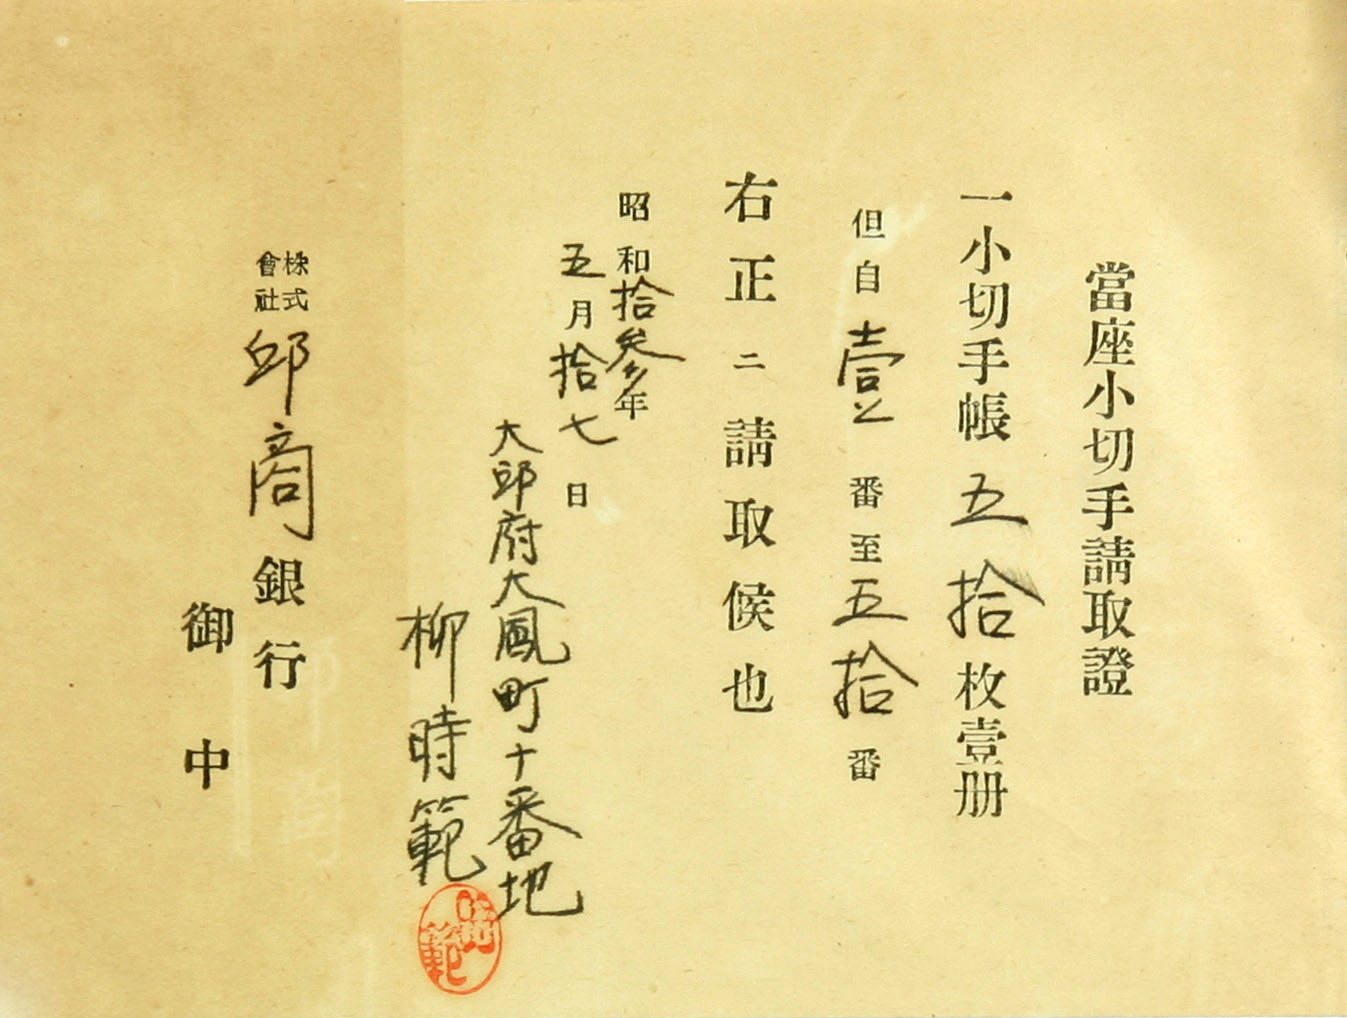 當座小切手請取證
一小切手帳五拾枚壹册
但自壹番至五拾番
右正ニ請取候也
昭和拾參年
五月拾七日
大邱府大鳳町十番地
柳時範
時範
株式會社邱商銀行
御中